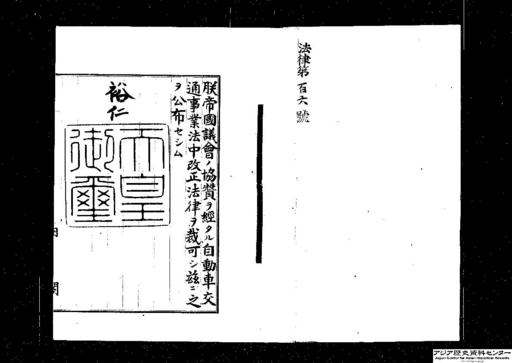 法律第百六號
朕帝國議會ノ協贊ヲ經タル自動車交
通事業法中改正法律ヲ裁可シ茲ニ之
ヲ公布セシム
裕仁
天皇
御璽
内閣
アジア歴史資料センター
Japan Center for Asian Historical Records